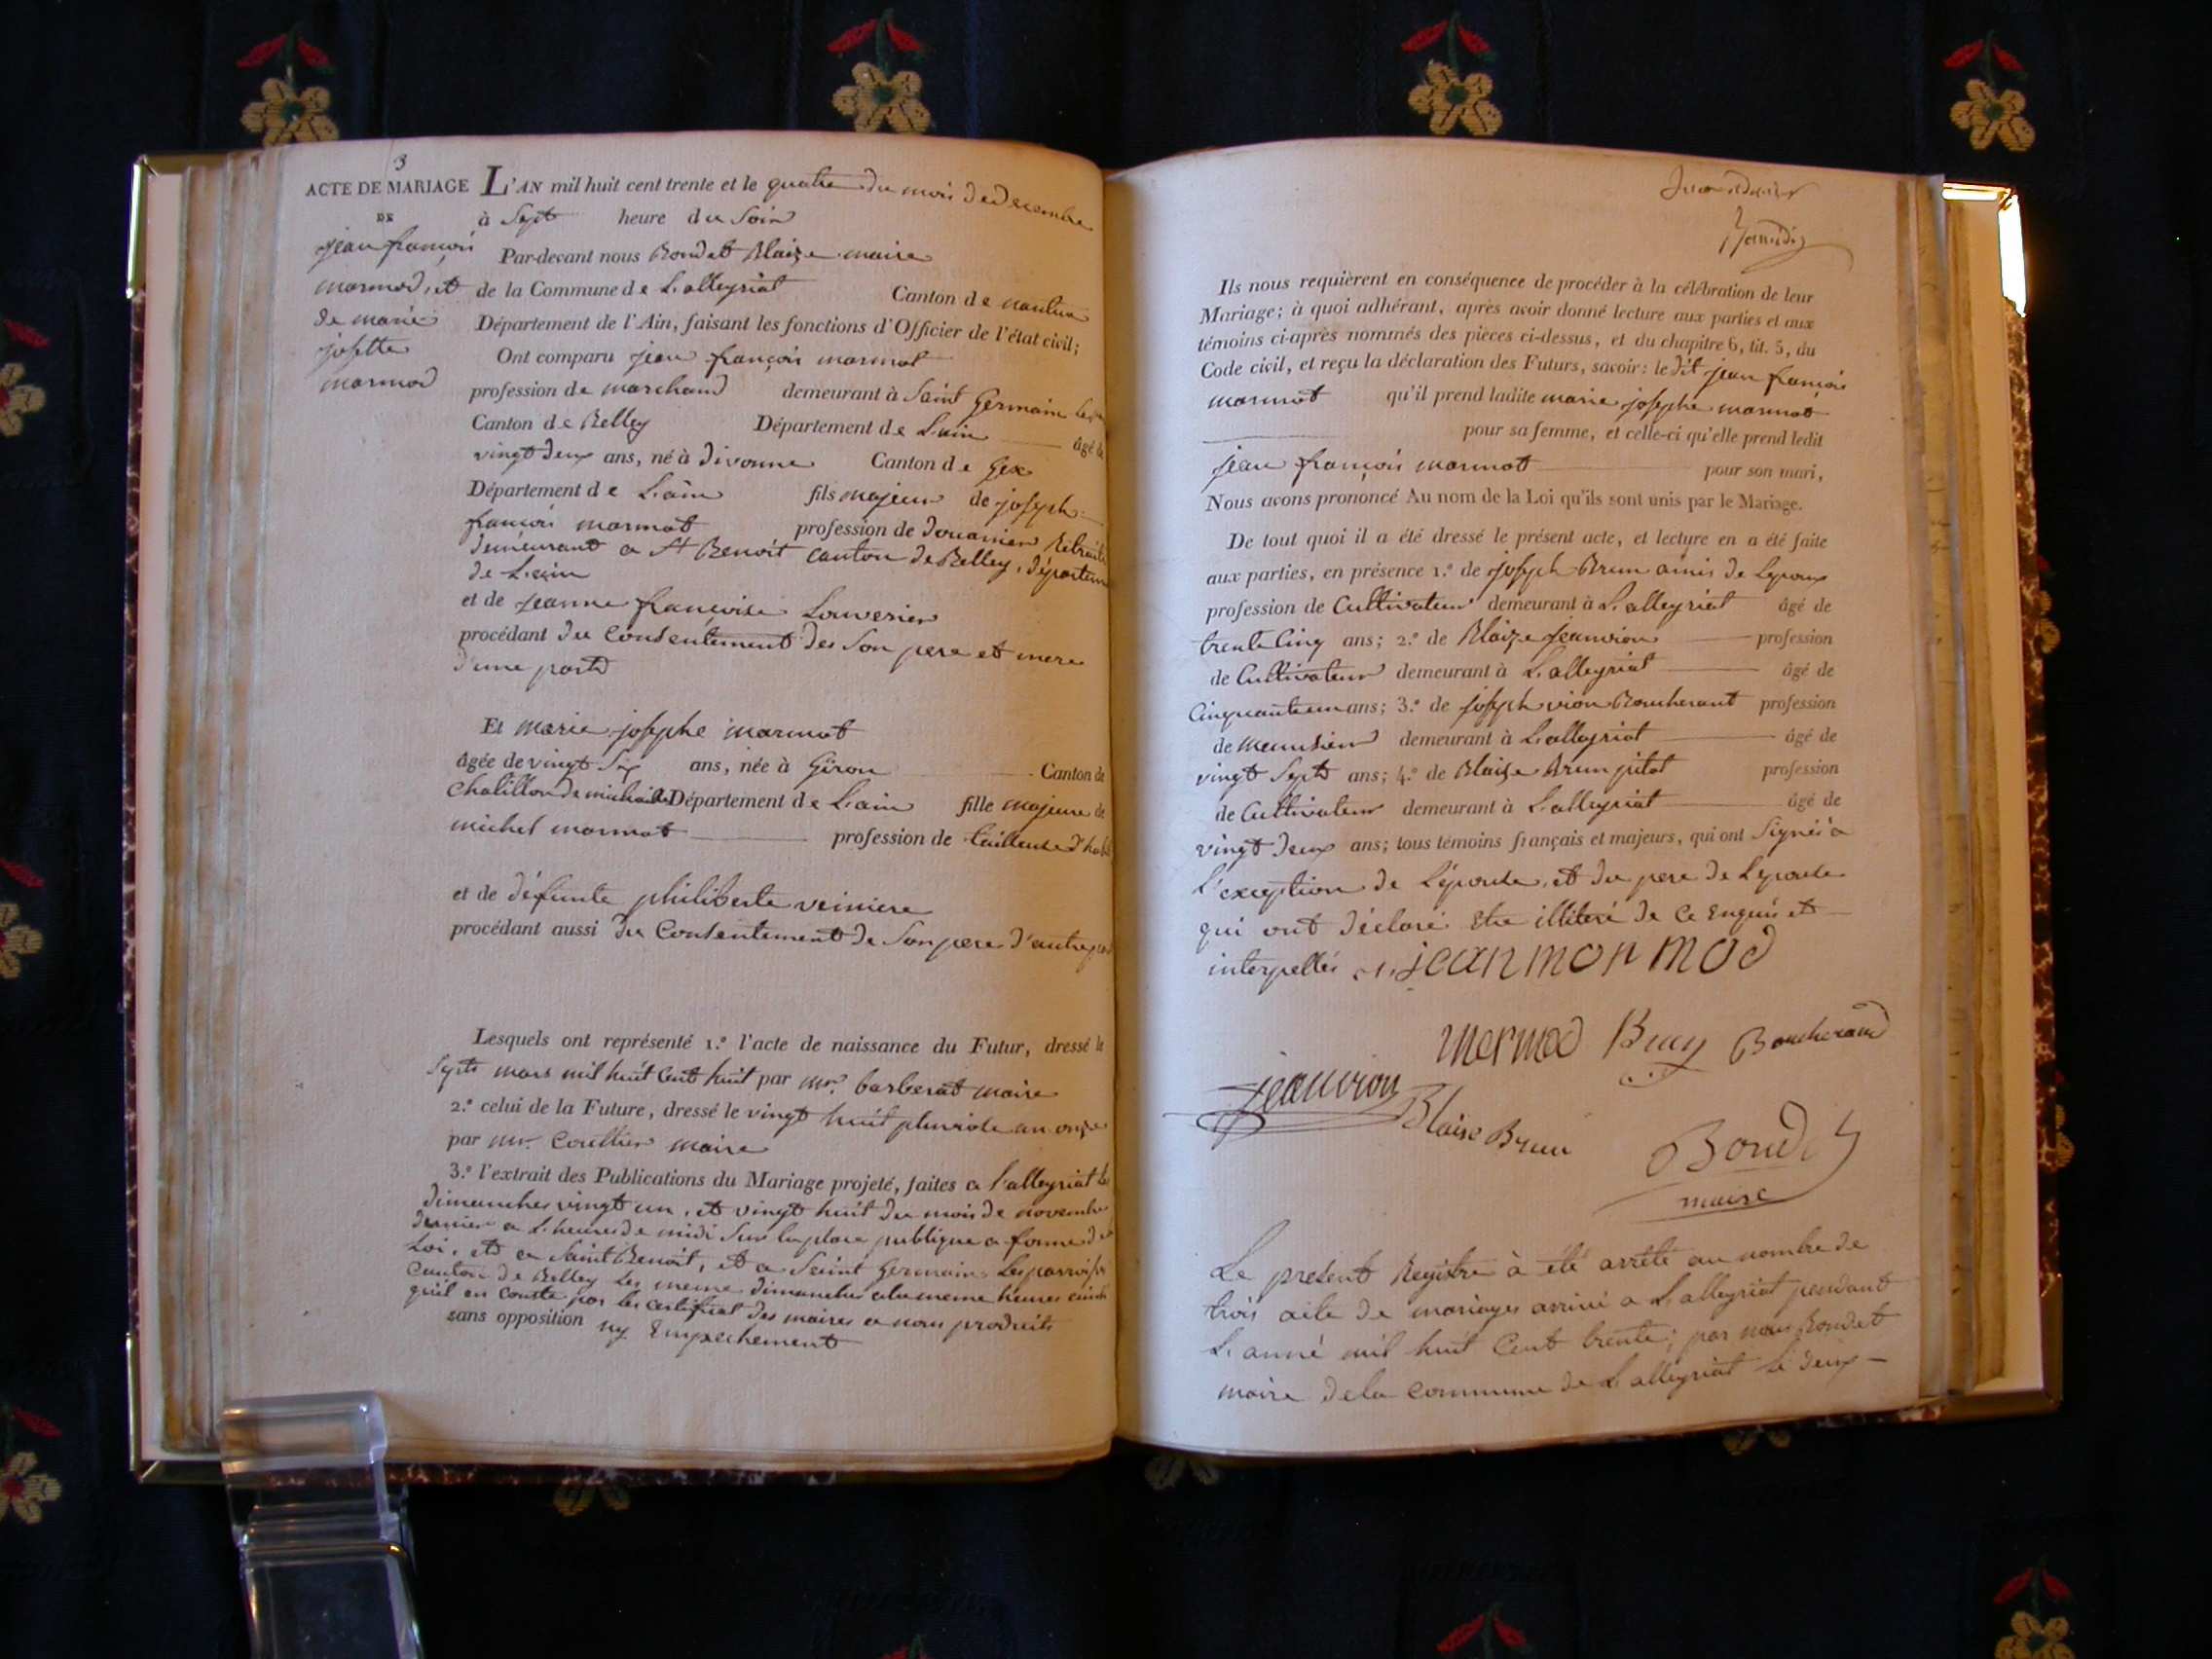 3
ACTE DE MARIAGE
DE
jean françois
marmod, et
de marie
josette
marmod
L'AN mil huit cent trente et le quatre du mois de Decembre
à Sept heure du Soir
Par-devant nous Bondet Blaize maire
de la Commune de L'alleyriat Canton de nantua
Département de l'Ain, faisant les fonctions d'Officier de l'état civil;
Ont comparu jean françois marmot
profession de marchand demeurant à Saint Germain les
Canton de Belley Département de L'ain âgé de
vingt deux ans, né à divonne Canton de Gex
Département de L'ain fils majeur de joseph
françois marmot profession de douanier Retraité
demeurant a St Benoit canton de Belley, département
de L'ain
et de jeanne françoise Louverier
procédant du Consentement des Son pere et mere
d'une part
Et marie josephe marmot
âgée de vingt Six ans, née à Giron Canton de
Chatillon de michaille Département de L'ain fille majeure de
michel marmot profession de tailleuse d'habit
et de défunte philiberte veiniere
procédant aussi du Consentement de Son pere d'autre part
Lesquels ont représenté 1.º l'acte de naissance du Futur, dressé le
Sept mars mil huit Cent huit par mr. barberat maire
2.º celui de la Future, dressé le vingt huit pluviose an onze
par mr. Coultier maire
3.º l'extrait des Publications du Mariage projeté, faites a l'alleyriat les
dimanches vingt un, et vingt huit du mois de novembre
dernier a L'heure de midi Sur la place publique a forme de
Loi, et a Saint Benoit, et a Saint Germain les parroisses
Canton de Belley les meme dimanches a la meme heures ainsi
qu'il en conste par les certificat des maires a nous produits
sans opposition ny Empechement
Ils nous requièrent en conséquence de procéder à la célébration de leur
Mariage; à quoi adhérant, après avoir donné lecture aux parties et aux
témoins ci-après nommés des pièces ci-dessus, et du chapitre 6, tit. 5, du
Code civil, et reçu la déclaration des Futurs, savoir: le dit jean françois
marmot qu'il prend ladite marie josephe marmot
pour sa femme, et celle-ci qu'elle prend ledit
jean françois marmot pour son mari,
Nous avons prononcé Au nom de la Loi qu'ils sont unis par le Mariage.
De tout quoi il a été dressé le présent acte, et lecture en a été faite
aux parties, en présence 1.º de joseph Brun amis de Lepoux
profession de Cultivateur demeurant à L'alleyriat âgé de
trente Cinq ans; 2.º de Blaize jeanvion profession
de Cultivateur demeurant à L'alleyriat âgé de
Cinquante un ans; 3.º de joseph vion Boucherant profession
de meunsier demeurant à L'alleyriat âgé de
vingt Sept ans; 4.º de Blaize Brun pitot profession
de Cultivateur demeurant à L'alleyriat âgé de
vingt deux ans; tous témoins français et majeurs, qui ont Signés a
l'exception de L'épouse, et du pere de Lepouse
qui ont déclaré Etre illiteré de Ce Enquis et
interpellés jean mormod
mermod Brun Boucherand
jeanvion Blaise Brun
Bondet
maire
Le present Registre à été arrêté au nombre de
trois acte de mariages arrivé a L'alleyriat pendant
L'anné mil huit Cent trente; par nous Bondet
maire de la Commune de L'alleyriat le deux